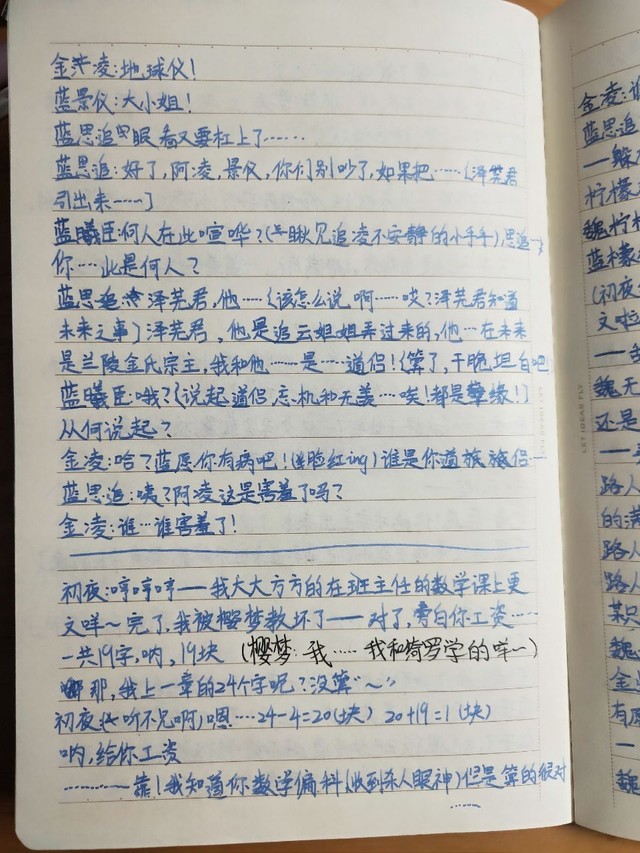 金凌:地球仪!
蓝景仪:大小姐!
蓝思追:眼看又要杠上了……
蓝思追:好了,阿凌,景仪,你们别吵了,如果把……{泽芜君
引出来……}
蓝曦臣:何人在此喧哗?(一瞅见追凌不安静的小手手)思追
你……此是何人?
蓝思追:泽芜君,他……{该怎么说啊……哎?泽芜君知道
未来之事}泽芜君,他是追云姐姐弄过来的,他…在未来
是兰陵金氏宗主,我和他……是……道侣!{算了,干脆坦白吧
蓝曦臣:哦?{说起道侣,忘机和无羡…唉!都是孽缘!}
从何说起?
金凌:啥?蓝愿你有病吧!(脸红ing)谁是你道侣
蓝思追:咦?阿凌这是害羞了吗?
金凌:谁…谁害羞了!
初夜:哼哼哼——我大大方方的在班主任的数学课上更
文咩~完了,我被樱梦教坏了——对了,旁白你工资……
一共19字,呐,19块 (樱梦:我……我和绮罗学的咩~)
那,我上一章的24个字呢?没算"~"
初夜:(听不见啊)嗯…24-4=20(块) 20+19=1(块)
呐,给你工资
……靠!我知道你数学偏科(收到杀人眼神)但是算的很对
……
LET IDEAS FLY
金凌:
蓝思追
一躲
柠檬
魏柠檬
蓝檬
(初夜
文啦
魏无
还是
路人
的满
路人
路人
某只
魏
金
有原
魏